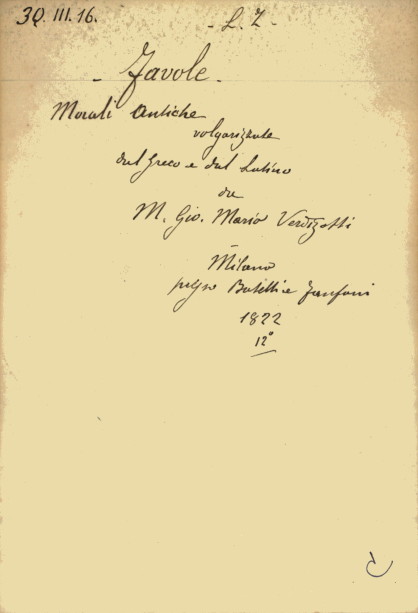 30. III. 16.
- L. Z -
- Favole -
Morali Antiche
volgarizzate
dal Greco e dal Latino
da
M. Gio. Mario Verdizotti
Milano
presso Batelli e Fanfani
1822
12°